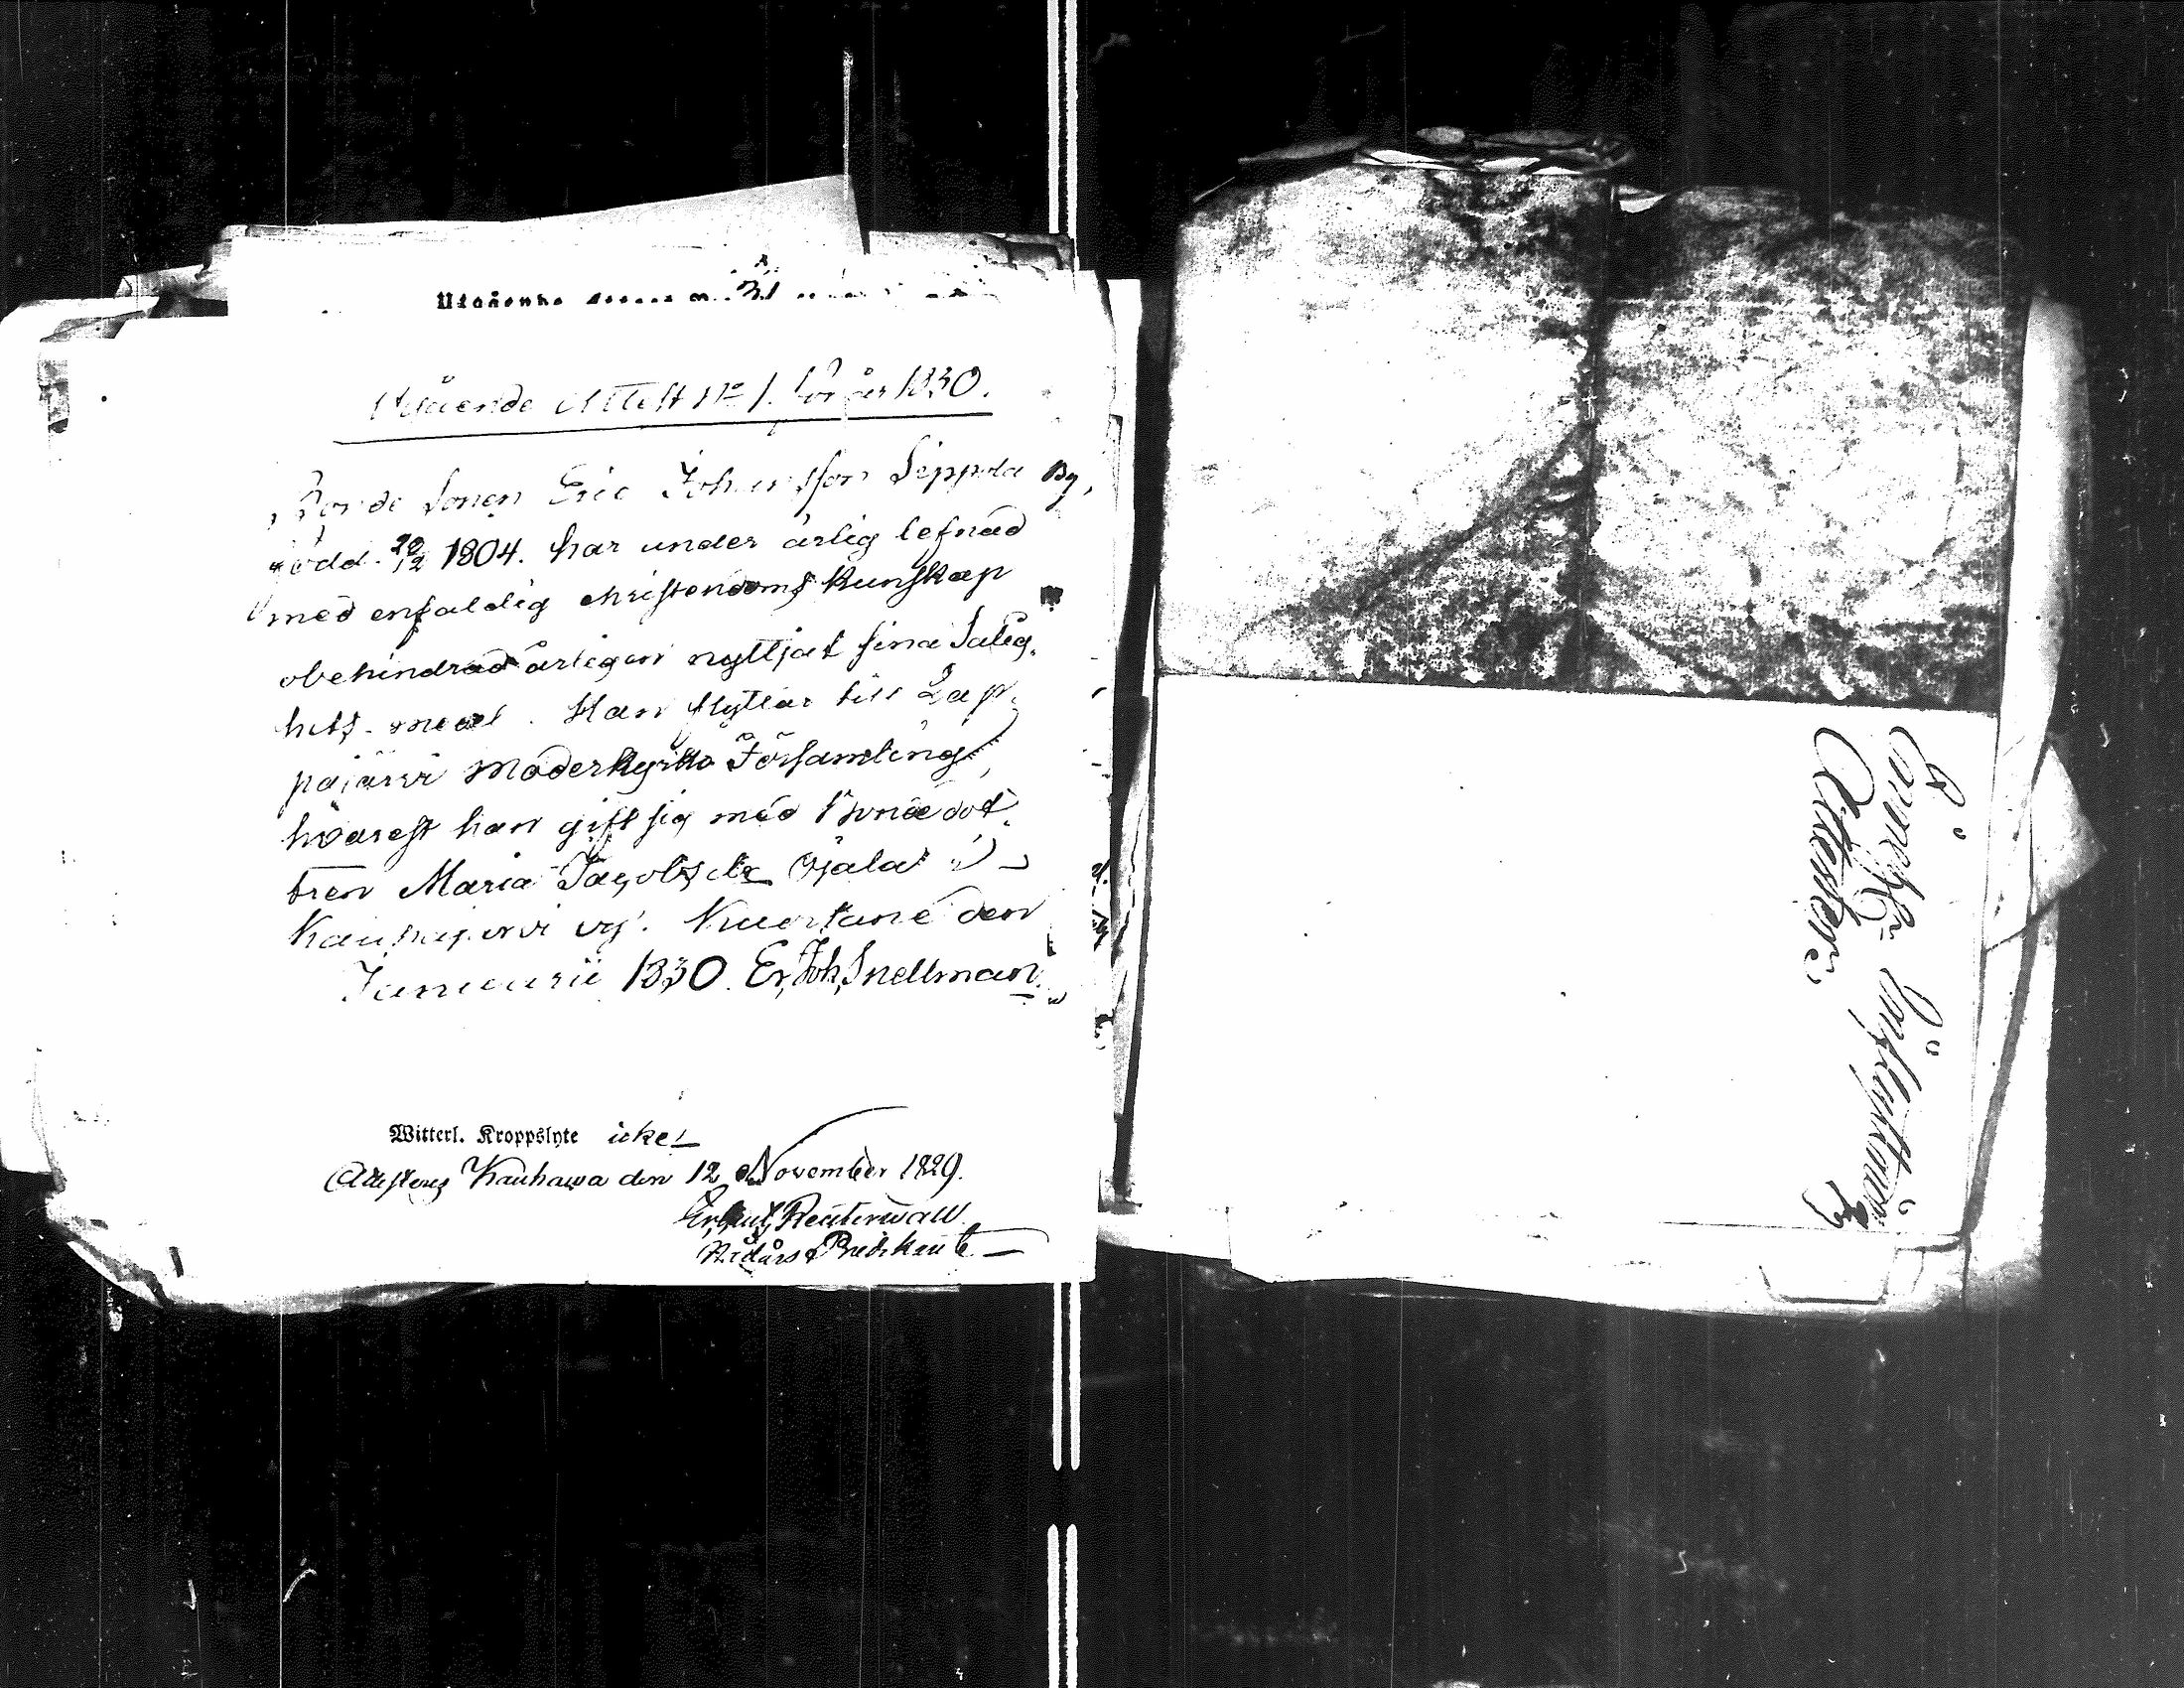 Utgående
Utgående Attest No 1. för år 1830.
Bonde Sonen Eric Johansson Seppola
född 20/12 1804. har under ärlig lefnad
med enfaldig christendoms kunskap
obehindrad årligen nyttjat sina Salig-
hets-medel. Han flyttar till Lap-
pajärvi Moderkyrko Församling,
hvarest han gift sig med Bondedot-
tren Maria Jacobsdr Ojala i
Kauhajärvi by. Kuortane den
Januarii 1830. Er, Joh, Snellman.
Witterl. Kroppslyte icke
Attesteras Kauhawa den 12 November 1829.
Reuterwall
Nådårs Predikant
Attester